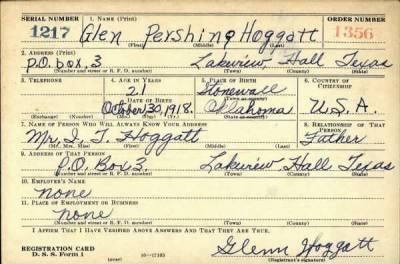 SERIAL NUMBER 1. NAME (Print) ORDER NUMBER
1217 Glen Pershing Hoggatt 1356
(First) (Middle) (Last)
2. ADDRESS (Print)
P.O. box, 3 Lakeview Hall Texas
(Number and street or R. F. D. number) (Town) (County) (State)
3. TELEPHONE 4. AGE IN YEARS 5. PLACE OF BIRTH 6. COUNTRY OF CITIZENSHIP
21 Stonewall
DATE OF BIRTH (Town or county)
October 30, 1918. Oklahoma U.S.A.
(Exchange) (Number) (Mo.) (Day) (Yr.) (State or country)
7. NAME OF PERSON WHO WILL ALWAYS KNOW YOUR ADDRESS 8. RELATIONSHIP OF THAT PERSON
Mr. I. T. Hoggatt Father
(Mr., Mrs., Miss) (First) (Middle) (Last)
9. ADDRESS OF THAT PERSON
P.O. Box 3, Lakeview, Hall Texas
(Number and street or R. F. D. number) (Town) (County) (State)
10. EMPLOYER'S NAME
none
11. PLACE OF EMPLOYMENT OR BUSINESS
none
(Number and street or R. F. D. number) (Town) (County) (State)
I AFFIRM THAT I HAVE VERIFIED ABOVE ANSWERS AND THAT THEY ARE TRUE.
REGISTRATION CARD Glenn Hoggatt
D. S. S. Form 1 16—17105 (Registrant's signature)